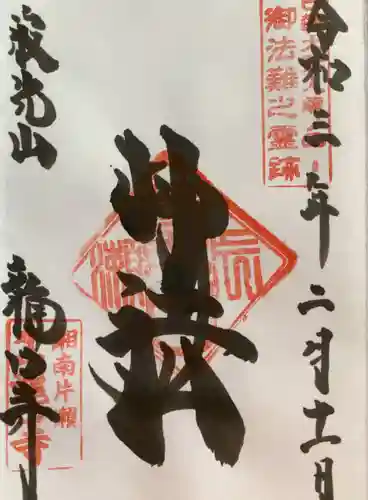 令和三年二月十一日
御法難之靈跡
妙法
寂光山
龍口寺
湘南片瀬